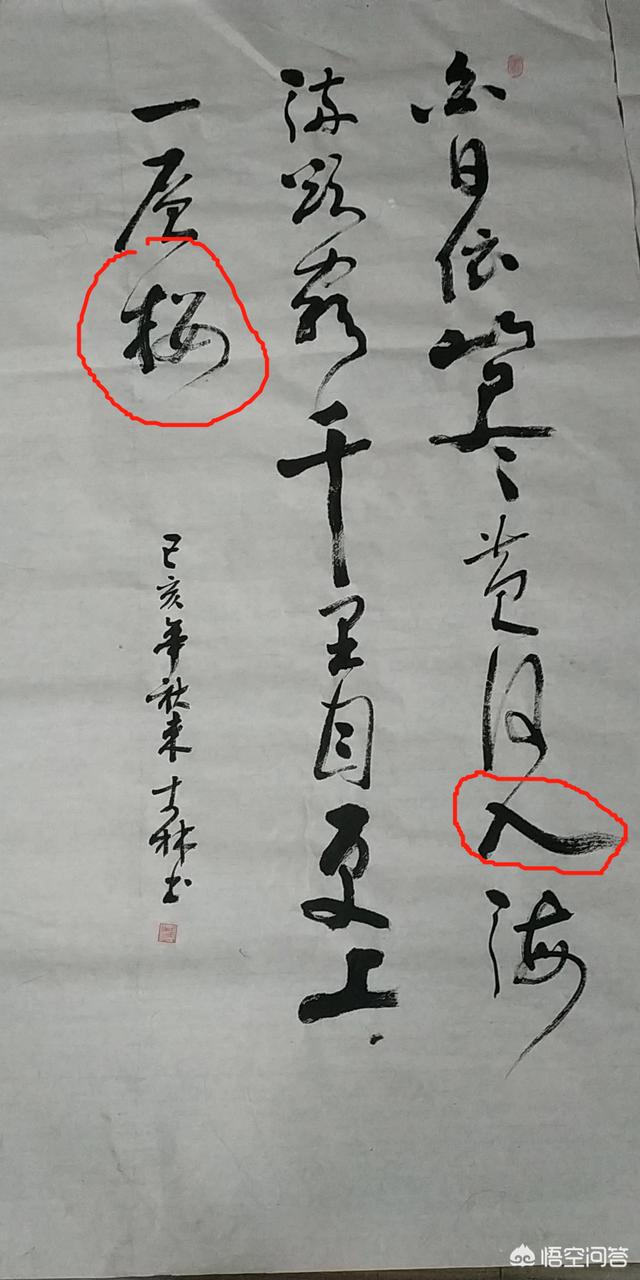 白日依山尽黄河入海
流欲穷千里目更上
一层楼
己亥年秋来吉林书
悟空问答